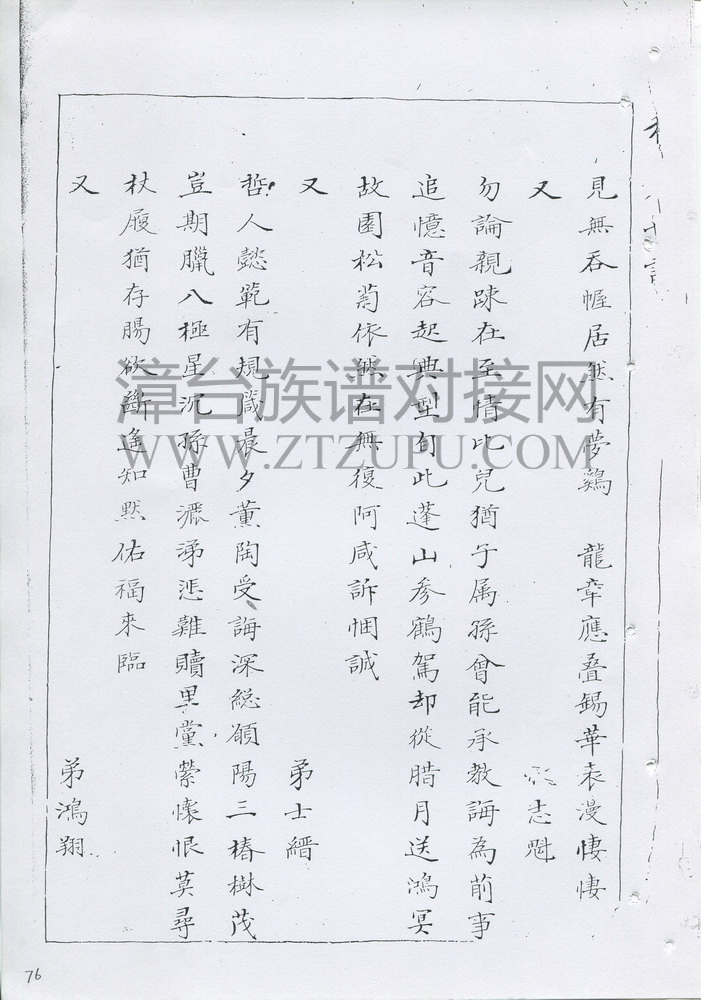 見無吞幄居然有夢鷄　龍章應叠錫華表漫悽悽
又　志魁
勿論親踈在至情比兒猶子属孫曾能承教誨為前事
追憶音容起典型自此蓬山參鶴駕却從腊月送鴻冥
故園松菊依然在無復阿咸訴悃誠
又　弟士縉
哲人懿範有規箴晨夕薰陶受誨深総頎陽三椿樹茂
豈期臘八極星沉孫曹涕悲難贖里黨縈懷恨莫尋
杖履猶存腸欲斷遙知默佑福來臨
又　弟鴻翔
漳台族谱对接网
WWW.ZTZUPU.COM
76